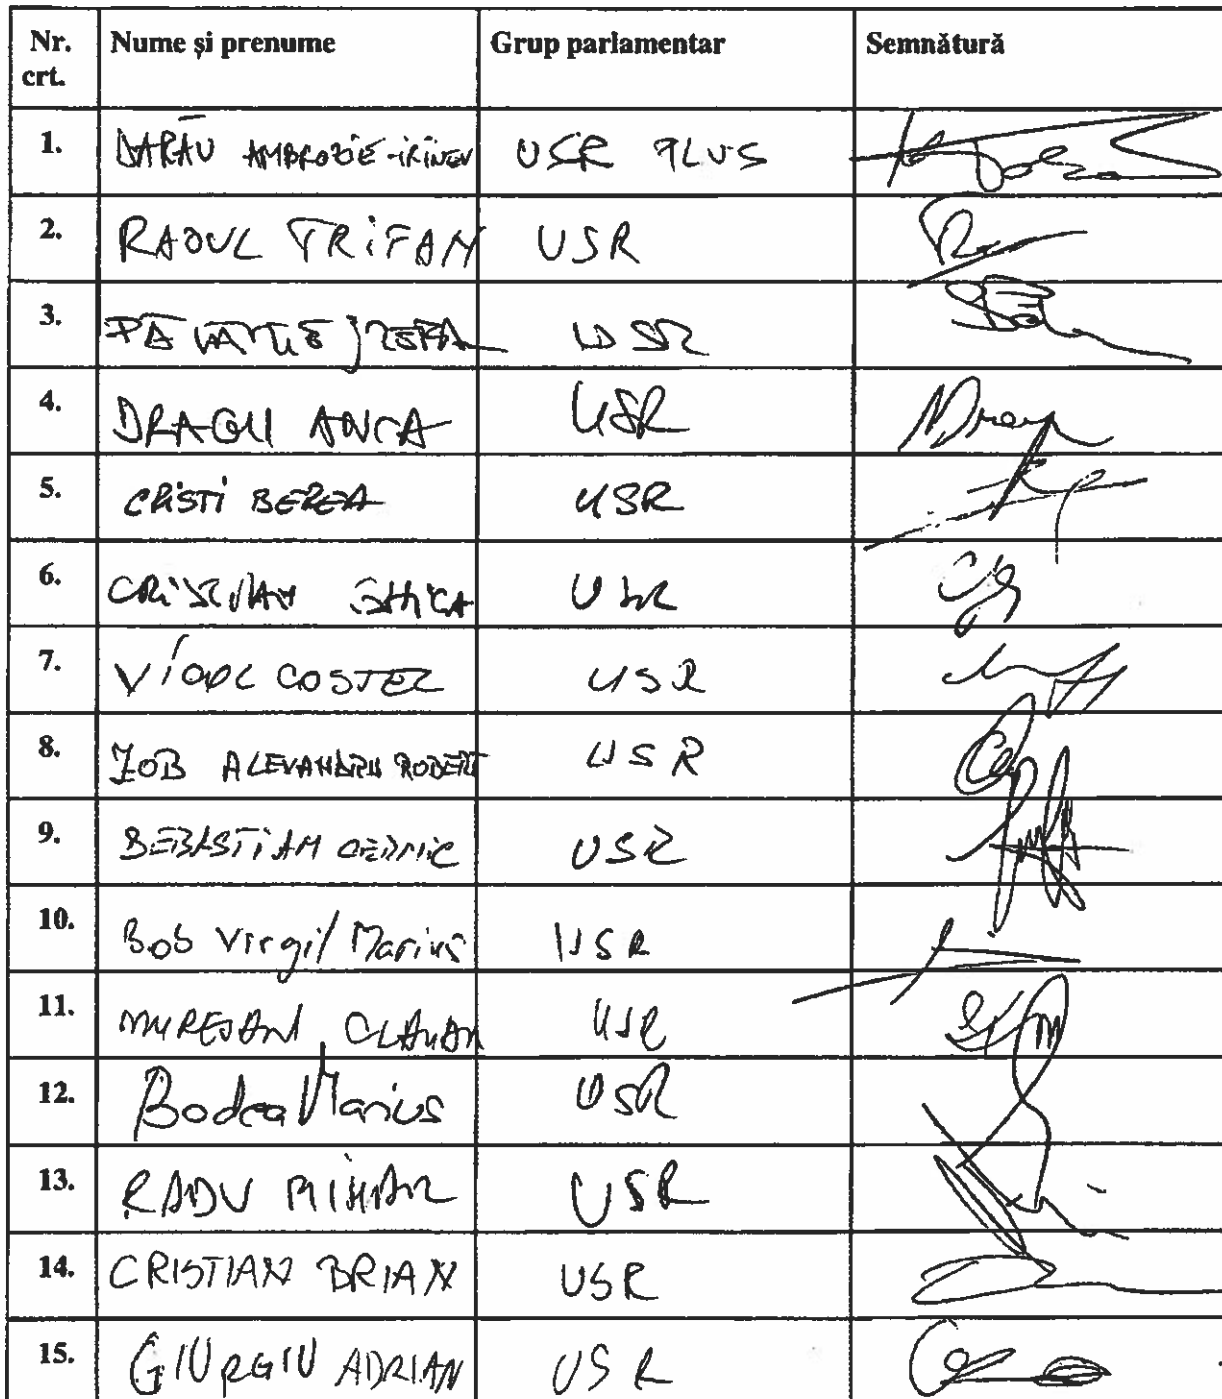 Nr. crt. Nume și prenume Grup parlamentar Semnătură
1. DARĂU AMBROZIE-IRINEU USR PLUS
2. RAOUL TRIFAN USR
3. USR
4. DRAGU ANCA USR
5. CRISTI BEREA USR
6. CRISTIAN GHICA USR
7. VICOL COSTEL USR
8. ZOB ALEXANDRU ROBERT USR
9. SEBASTIAN CERNIC USR
10. Bob Virgil Marius USR
11. MUREȘAN CLAUDIU USR
12. Bodea Marius USR
13. RADU MIHAIL USR
14. CRISTIAN BRIAN USR
15. GIURGIU ADRIAN USR